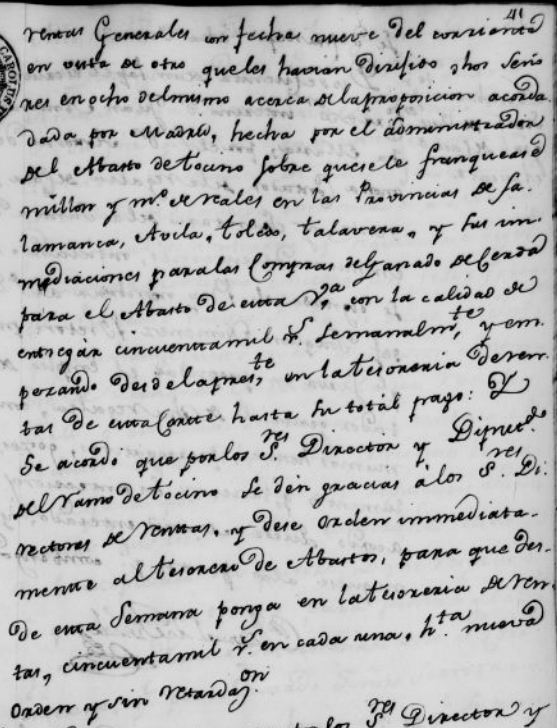 41
rentas Generales con fecha nueve del corriente
en vista de otro que les havian dirijido dhos Seño
res en ocho del mismo acerca de la proposicion acorda
dada por Madrid, hecha por el administrador
del Abasto de tocino sobre que se le franquease
millon y mº. de reales en las Provincias de Sa
lamanca, Avila, toledo, talavera, y sus im
mediaciones para las Compras del Ganado de Cerda
para el Abasto de esta Vª. con la calidad de
entregar cincuenta mil rˢ. Semanalmᵗᵉ, y em
pezando desde la presᵗᵉ, en la tesoreria de ren
tas de esta Corte hasta su total pago: Y
Se acordó que por los Sʳᵉˢ. Director y Diputᵈᵒ
del ramo de tocino se den gracias á los Sʳᵉˢ. Di
rectores de renttas, y dese orden immediata
mente al tesorero de Abastos, para que des
de esta Semana ponga en la tesoreria de ren
tas, cincuenta mil rˢ. en cada una, hᵗᵃ nueva
orden y sin retardazᵒⁿ.
los Sʳᵉˢ Director y